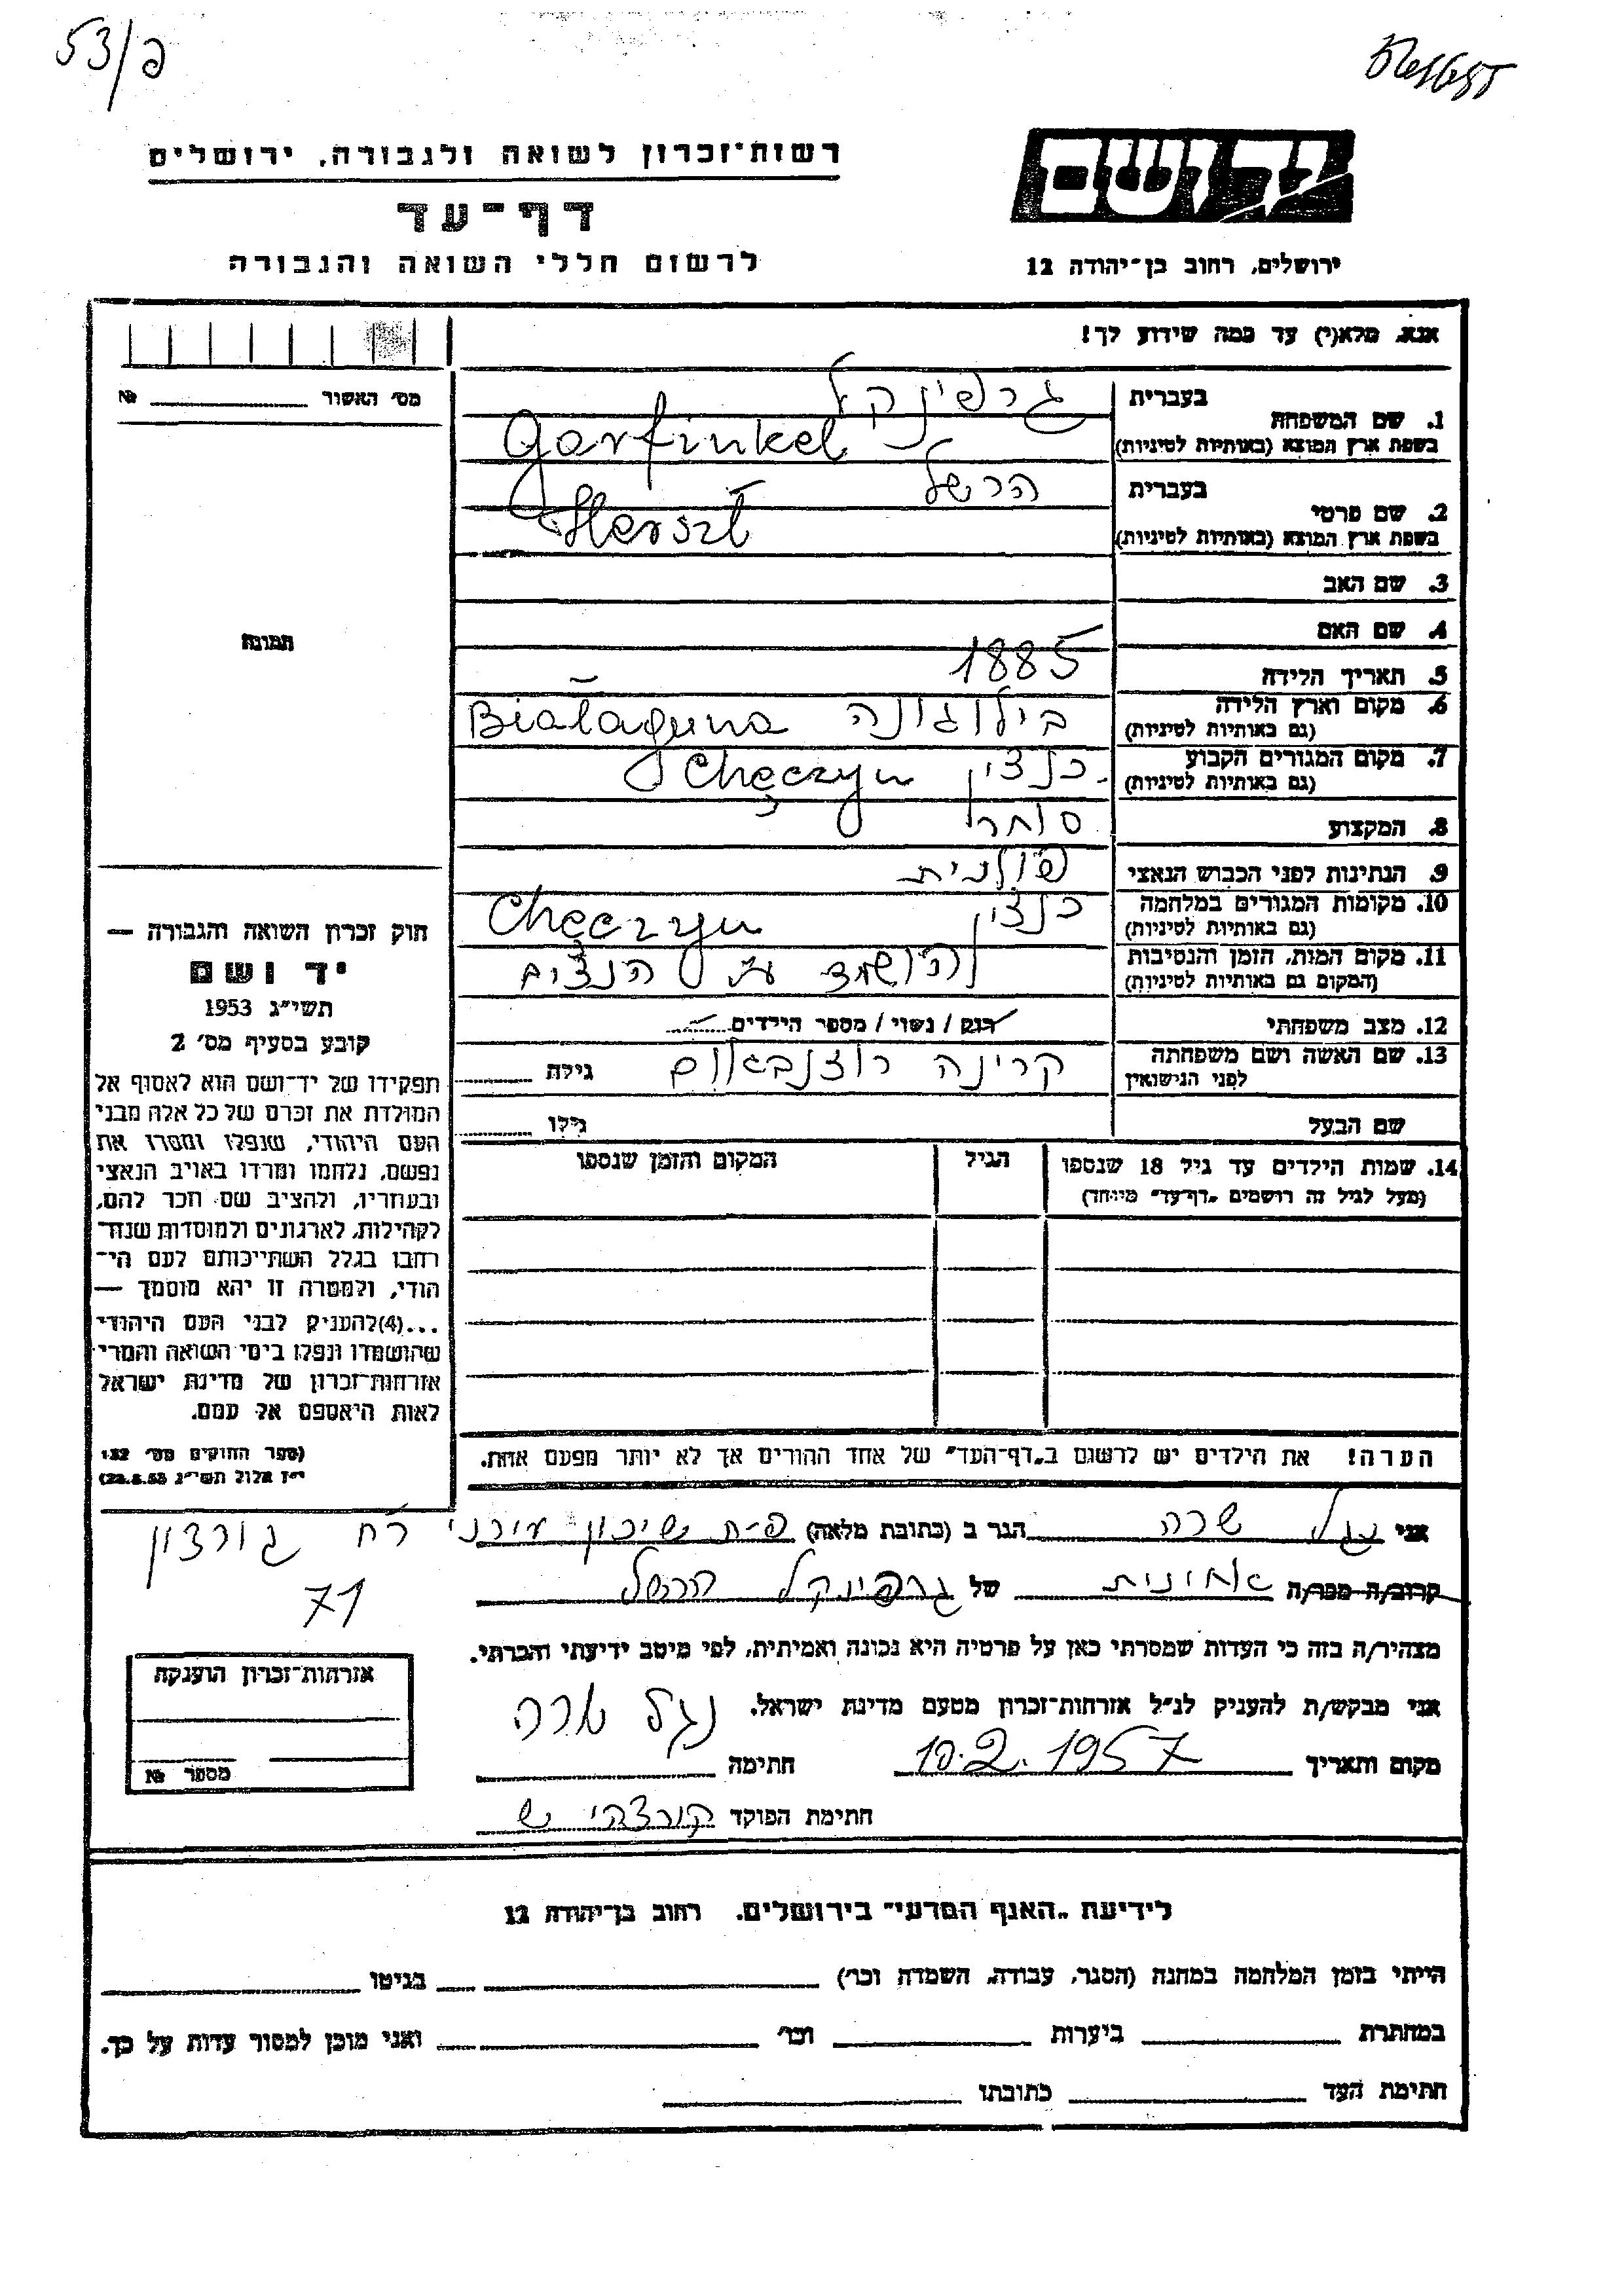 53/פ
רשות־זכרון לשואה ולגבורה, ירושלים
דף־עד
לרשום חללי השואה והגבורה
יד ושם
ירושלים, רחוב בן־יהודה 12
אנא, מלא(י) עד כמה שידוע לך!
מס׳ האשור № 
1. שם המשפחה בעברית גרפינקל
בשפת ארץ המוצא (באותיות לטיניות) Garfinkel
2. שם פרטי בעברית הרשל
בשפת ארץ המוצא (באותיות לטיניות) Herszl
3. שם האב
4. שם האם
5. תאריך הלידה 1885
6. מקום וארץ הלידה בילוגונה Białaguna
(גם באותיות לטיניות)
7. מקום המגורים הקבוע כנצין Chęczyn
(גם באותיות לטיניות)
8. המקצוע סוחר
9. הנתינות לפני הכבוש הנאצי פולנית
10. מקומות המגורים במלחמה כנצין Chęczyn
(גם באותיות לטיניות)
11. מקום המות, הזמן והנסיבות הושמד ע״י הנצים
(המקום גם באותיות לטיניות)
12. מצב משפחתי רווק / נשוי / מספר הילדים
13. שם האשה ושם משפחתה קרינה רוזנבאום גילה
לפני הנישואין
שם הבעל גילו
14. שמות הילדים עד גיל 18 שנספו הגיל המקום והזמן שנספו
(מעל לגיל זה רושמים „דף־עד״ מיוחד)
הערה! את הילדים יש לרשום ב„דף־העד״ של אחד ההורים אך לא יותר מפעם אחת.
תמונה
חוק זכרון השואה והגבורה —
יד ושם
תשי״ג 1953
קובע בסעיף מס׳ 2
תפקידו של יד־ושם הוא לאסוף אל
המולדת את זכרם של כל אלה מבני
העם היהודי, שנפלו ומסרו את
נפשם, נלחמו ומרדו באויב הנאצי
ובעוזריו, ולהציב שם וזכר להם,
לקהילות, לארגונים ולמוסדות שנח־
רבו בגלל השתייכותם לעם הי־
הודי, ולמטרה זו יהא מוסמך —
...(4)להעניק לבני העם היהודי
שהושמדו ונפלו בימי השואה והמרי
אזרחות־זכרון של מדינת ישראל
לאות היאספם אל עמם.
(ספר החוקים מס׳ 132
י״ז אלול תשי״ג 28.8.53)
אני נגל שרה הגר ב (כתובת מלאה) פ־ת שיכון עירוני רח גורדון
71
קרוב/ה מכר/ה אחינית של גרפינקל הרשל
מצהיר/ה בזה כי העדות שמסרתי כאן על פרטיה היא נכונה ואמיתית, לפי מיטב ידיעתי והכרתי.
אני מבקש/ת להעניק לנ״ל אזרחות־זכרון מטעם מדינת ישראל. נגל שרה
מקום ותאריך 10.2.1957 חתימה
חתימת הפוקד
אזרחות־זכרון הוענקה
מספר №
לידיעת „האגף המדעי״ בירושלים. רחוב בן־יהודה 12
הייתי בזמן המלחמה במחנה (הסגר, עבודה, השמדה וכו׳) בגיטו
במחתרת ביערות וכו׳ ואני מוכן למסור עדות על כך.
חתימת העד כתובתו